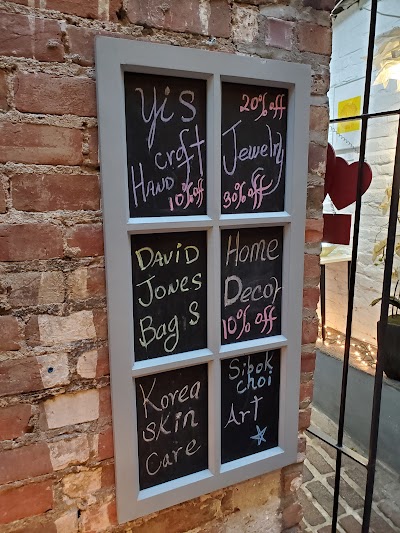 Yis
craft
Hand
10% off
20% off
Jewelry
30% off
David
Jones
Bags
Home
Decor
10% off
Korea
skin
Care
Sibok
choi
Art